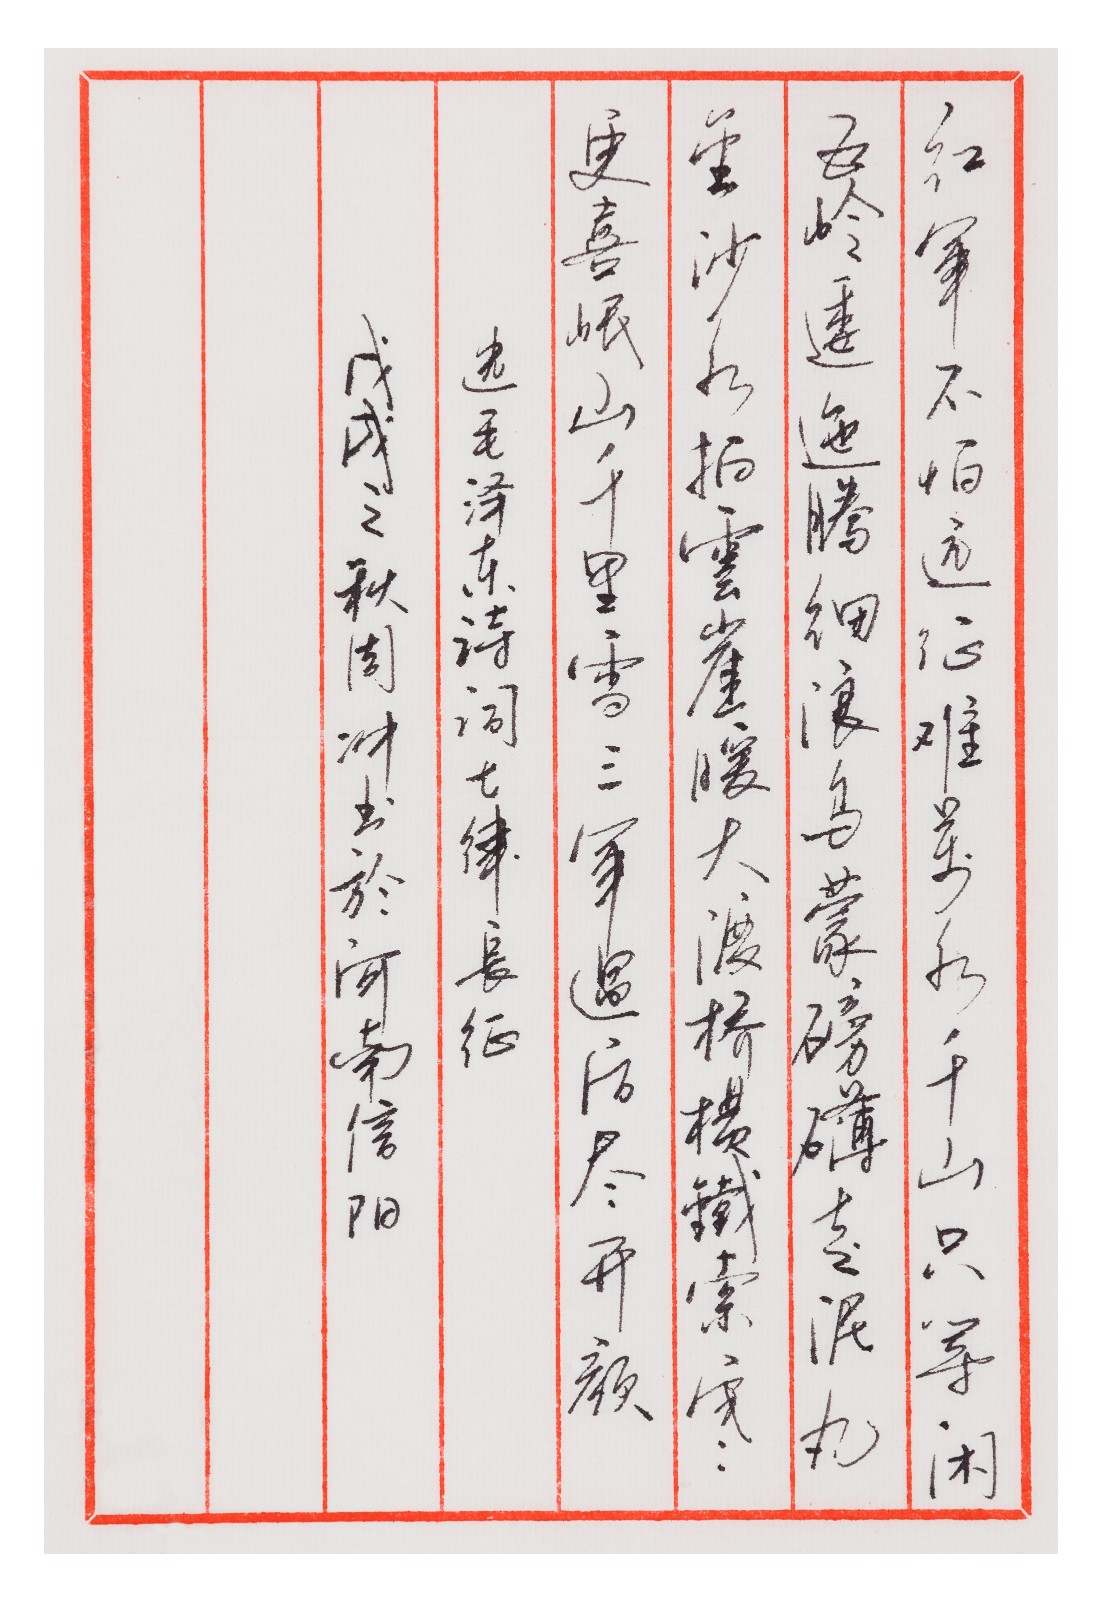 红军不怕远征难萬水千山只等闲
五岭逶迤腾细浪乌蒙磅礴走泥丸
金沙水拍雲崖暖大渡桥横鐵索寒
更喜岷山千里雪三军過后尽开颜
选毛泽东诗词七律長征
戊戌之秋周冲书於河南信阳